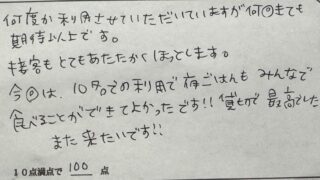 何度か利用させていただいていますが何回きても
期待以上です。
接客もとてもあたたかくほっとします。
今回は、10名での利用で夜ごはんもみんなで
食べることができてよかったです!! 貸切で最高でした
また来たいです!!
10点満点で 100 点